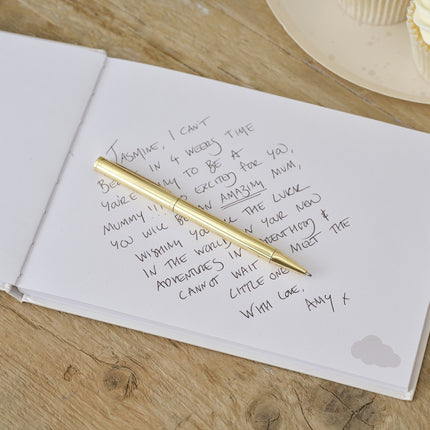 Jasmine, I can't
in 4 weeks time
you're to be a
Mummy!! excited for you,
you will be an amazing mum,
wishing you the luck
in the world in your new
adventures in &
cannot wait meet the
little one
With love,
Amy x